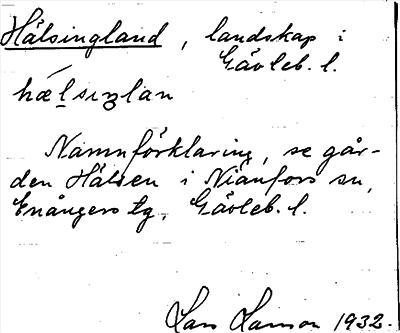 Hälsingland, landskap i
Gävleb. l.
hælsiŋlan
Namnförklaring, se går-
den Hälsen i Nianfors sn,
Enångers tg, Gävleb. l.
Lars Larsson 1932.